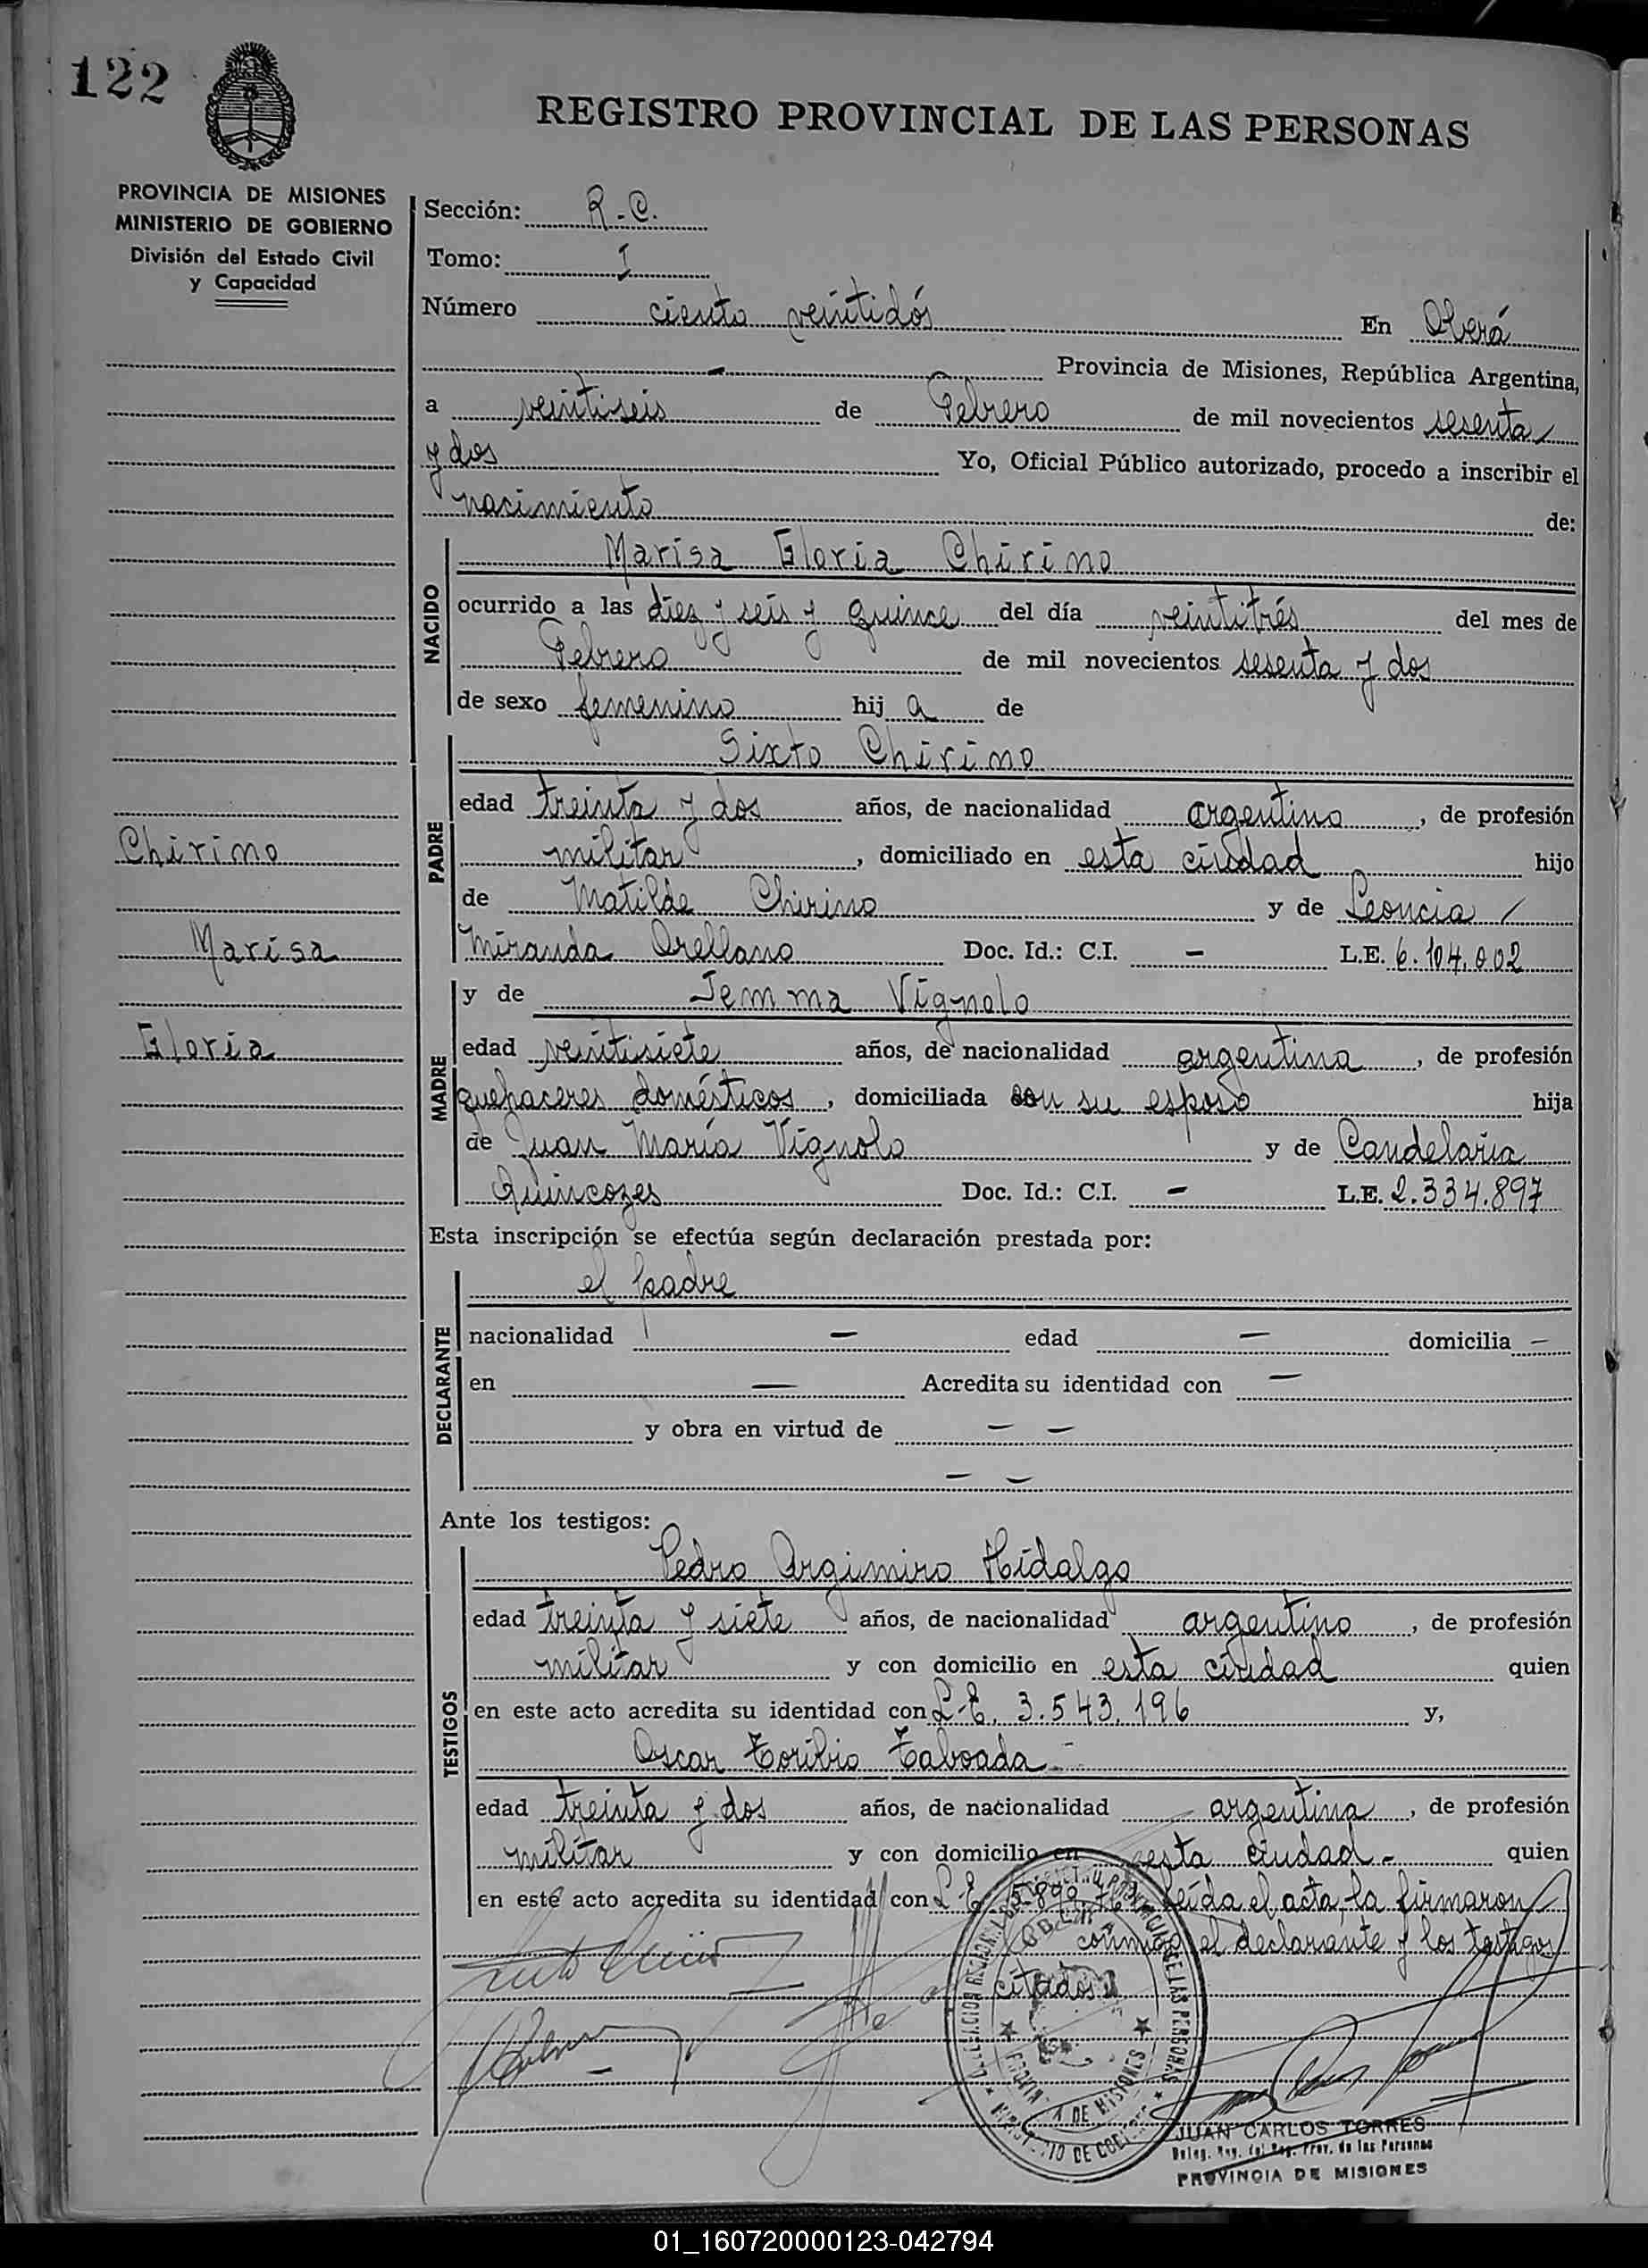 122
REGISTRO PROVINCIAL DE LAS PERSONAS
PROVINCIA DE MISIONES
MINISTERIO DE GOBIERNO
División del Estado Civil
y Capacidad
Sección: R.C.
Tomo: I
Número ciento veintidós En Oberá
— Provincia de Misiones, República Argentina,
a veintiseis de Febrero de mil novecientos sesenta /
y dos Yo, Oficial Público autorizado, procedo a inscribir el
nacimiento de:
NACIDO
Marisa Gloria Chirino
ocurrido a las diez y seis y quince del día veintitrés del mes de
Febrero de mil novecientos sesenta y dos
de sexo femenino hij a de
PADRE
Sixto Chirino
edad treinta y dos años, de nacionalidad argentino, de profesión
militar, domiciliado en esta ciudad hijo
de Matilde Chirino y de Leoncia /
Miranda Orellano Doc. Id.: C.I. — L.E. 6.104.002
Chirino
Marisa
Gloria
MADRE
y de Jemma Vignolo
edad veintisiete años, de nacionalidad argentina, de profesión
quehaceres domésticos, domiciliada con su esposo hija
de Juan María Vignolo y de Candelaria
Quincozes Doc. Id.: C.I. — L.E. 2.334.897
Esta inscripción se efectúa según declaración prestada por:
DECLARANTE
el padre
nacionalidad — edad — domicilia —
en — Acredita su identidad con —
y obra en virtud de — —
— —
Ante los testigos:
TESTIGOS
Pedro Argimiro Hidalgo
edad treinta y siete años, de nacionalidad argentino, de profesión
militar y con domicilio en esta ciudad quien
en este acto acredita su identidad con L.E. 3.543.196 y,
Oscar Toribio Taboada -
edad treinta y dos años, de nacionalidad argentina, de profesión
militar y con domicilio en esta ciudad.- quien
en este acto acredita su identidad con L.E. Leída el acta, la firmaron
conmigo el declarante y los testigos
citados
OBERA
DE LAS PERSONAS
DE MISIONES
JUAN CARLOS TORRES
Deleg. Reg. del Reg. Prov. de las Personas
PROVINCIA DE MISIONES
01_160720000123-042794